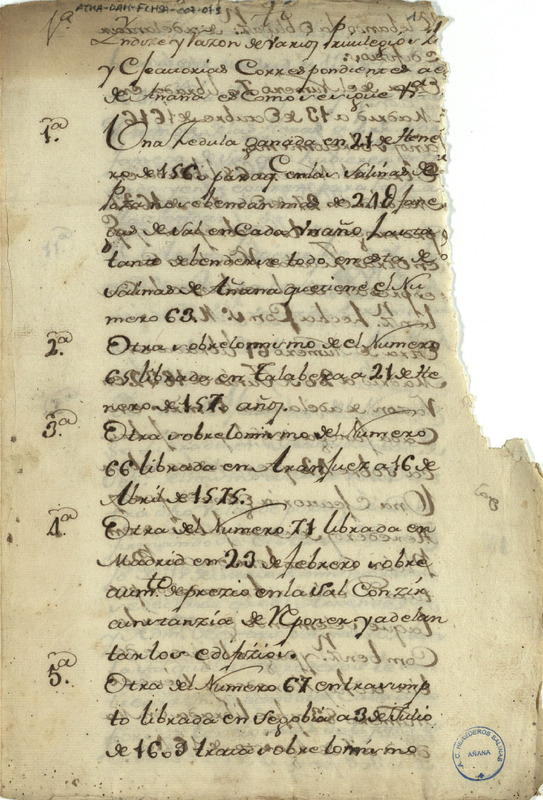 ATHA-DAH-FCHSA-007-013
Yndize y razon de varios Privilegios
y Executorias Correspondientes a
de Añana es como se sigue
1ª Una Zedula ganada en 21 de Hene
ro de 156 para q en las Salinas de
Poza no se bendan mas de 24 fane
gas de Sal en Cada Un año, hasta
tanto se bender se todo en esta de
Salinas de Añana que tiene el Nu
mero 63.
2ª Otra sobre lo mismo de el Numero
65 librada en Talabera a 21 de He
nero de 157 años.
3ª Otra sobre lo mismo del Numero
66 librada en Aranjuez a 16 de
Abril de 1575.
4ª Otra del Numero 71 librada en
Madrid en 23 de febrero sobre
aumto de prezio en la Sal Con zir
cunstanzia de Reponer, y adelan
tar los edifizios.
5ª Otra del Numero 67 en trasump
to librada en Segobia a 3 de Julio
de 1603 trata sobre lo mismo
A.C. HEREDEROS SALINAS
AÑANA